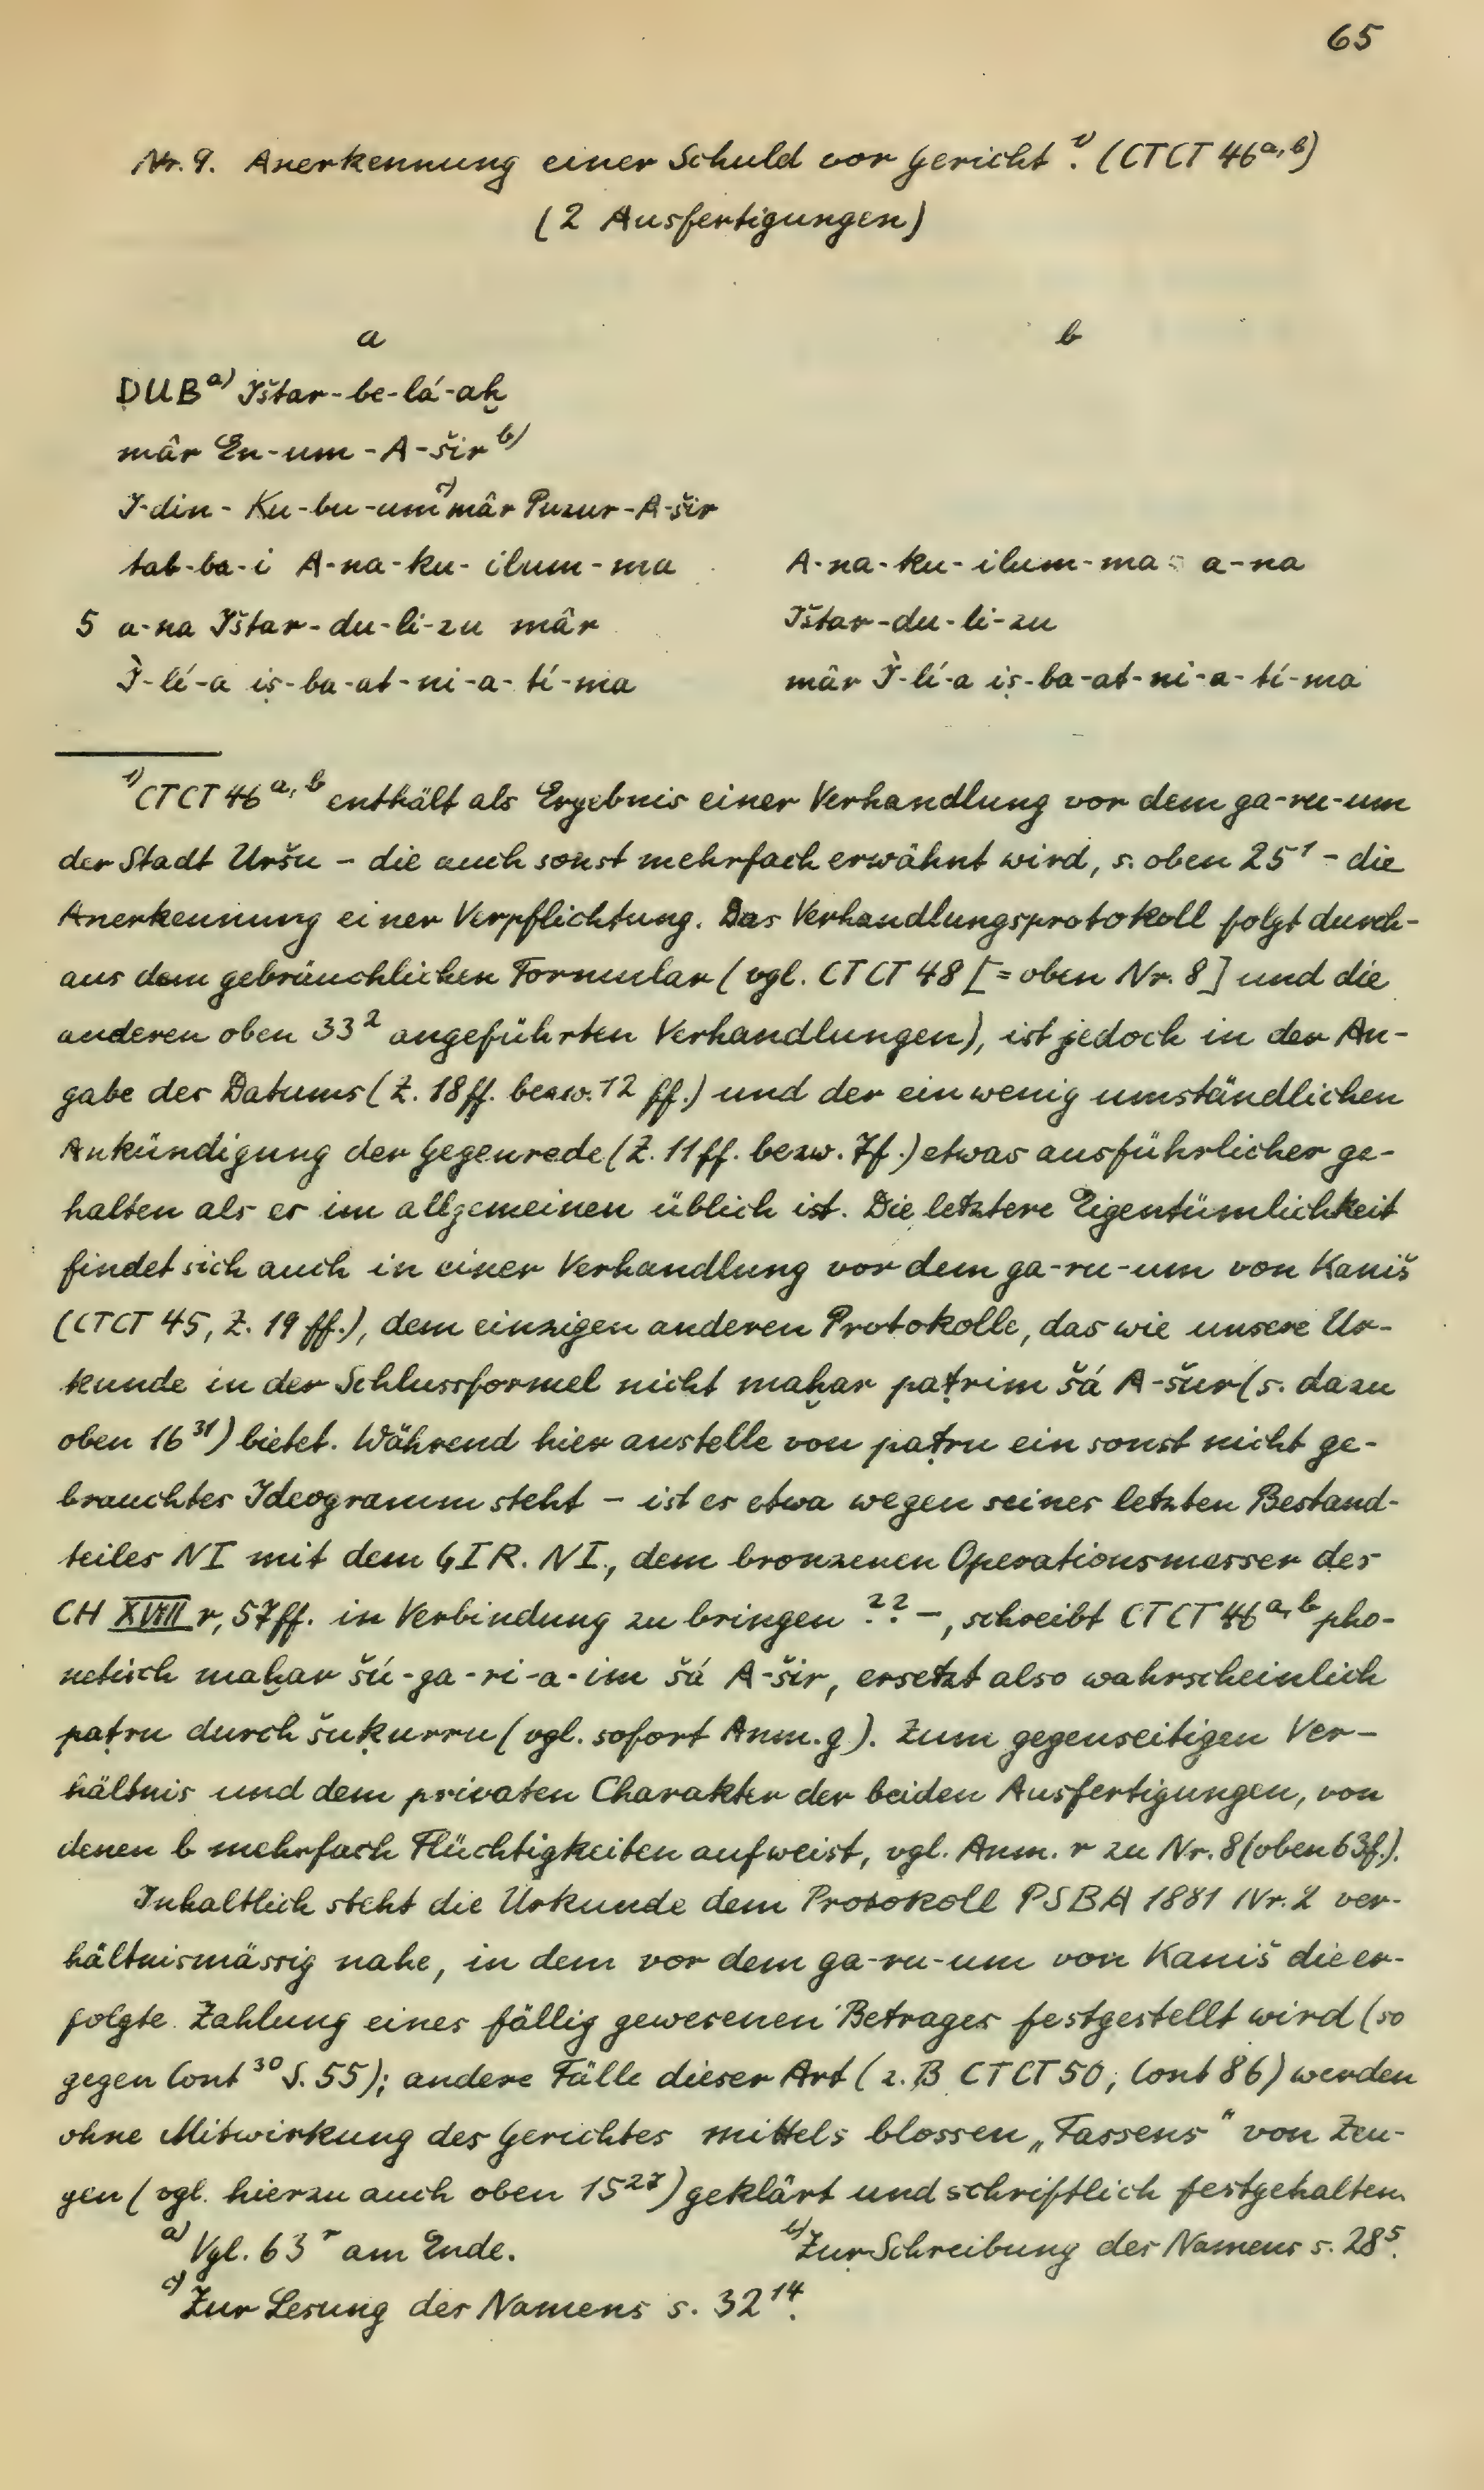 65
Nr. 9. Anerkennung einer Schuld vor Gericht ¹⁾. (CTCT 46ᵃ,ᵇ)
(2 Ausfertigungen)
a
b
DUBᵃ⁾ Ištar-be-lá-aḫ
mâr En-um-A-širᵇ⁾
I-din-Ku-bu-umᶜ⁾ mâr Puzur-A-šir
tab-ba-i A-na-ku-ilum-ma
A-na-ku-ilum-ma a-na
5 a-na Ištar-du-li-zu mâr
Ištar-du-li-zu
Ì-lí-a iṣ-ba-at-ni-a-tí-ma
mâr Ì-lí-a iṣ-ba-at-ni-a-tí-ma
¹⁾ CTCT 46ᵃ,ᵇ enthält als Ergebnis einer Verhandlung vor dem ga-ru-um
der Stadt Uršu – die auch sonst mehrfach erwähnt wird, s. oben 25¹ – die
Anerkennung einer Verpflichtung. Das Verhandlungsprotokoll folgt durch-
aus dem gebräuchlichen Formular (vgl. CTCT 48 [= oben Nr. 8] und die
anderen oben 33² angeführten Verhandlungen), ist jedoch in der An-
gabe des Datums (Z. 18ff. bezw. 12 ff.) und der ein wenig umständlichen
Ankündigung der Gegenrede (Z. 11ff. bezw. 7f.) etwas ausführlicher ge-
halten als es im allgemeinen üblich ist. Die letztere Eigentümlichkeit
findet sich auch in einer Verhandlung vor dem ga-ru-um von Kaniš
(CTCT 45, Z. 19 ff.), dem einzigen anderen Protokolle, das wie unsere Ur-
kunde in der Schlussformel nicht maḫar paṭrim šá A-šur (s. dazu
oben 16³¹) bietet. Während hier anstelle von paṭru ein sonst nicht ge-
brauchtes Ideogramm steht – ist es etwa wegen seines letzten Bestand-
teiles NI mit dem GIR. NI., dem bronzenen Operationsmesser des
CH XVIII r, 57ff. in Verbindung zu bringen ?? –, schreibt CTCT 46ᵃ,ᵇ pho-
netisch maḫar šú-ga-ri-a-im šá A-šir, ersetzt also wahrscheinlich
paṭru durch šukurru (vgl. sofort Anm. g). Zum gegenseitigen Ver-
hältnis und dem privaten Charakter der beiden Ausfertigungen, von
denen b mehrfach Flüchtigkeiten aufweist, vgl. Anm. r zu Nr. 8 (oben 63f.).
Inhaltlich steht die Urkunde dem Protokoll PSBA 1881 Nr. 2 ver-
hältnismässig nahe, in dem vor dem ga-ru-um von Kaniš die er-
folgte Zahlung eines fällig gewesenen Betrages festgestellt wird (so
gegen Cont ³⁰ S. 55); andere Fälle dieser Art (z. B CTCT 50, Cont 86) werden
ohne Mitwirkung des Gerichtes mittels blossen „Fassens“ von Zeu-
gen (vgl. hierzu auch oben 15²⁷) geklärt und schriftlich festgehalten.
ᵃ⁾ Vgl. 63ʳ am Ende.
ᵇ⁾ Zur Schreibung des Namens s. 28⁵.
ᶜ⁾ Zur Lesung des Namens s. 32¹⁴.